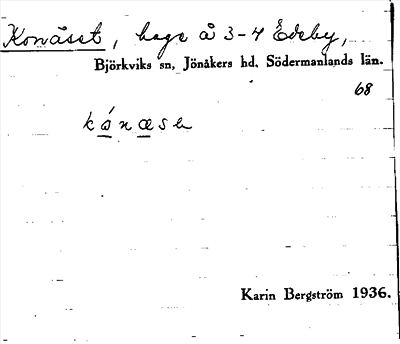 Konåset, hage å 3-4 Edeby,
Björkviks sn, Jönåkers hd, Södermanlands län.
68
Karin Bergström 1936.